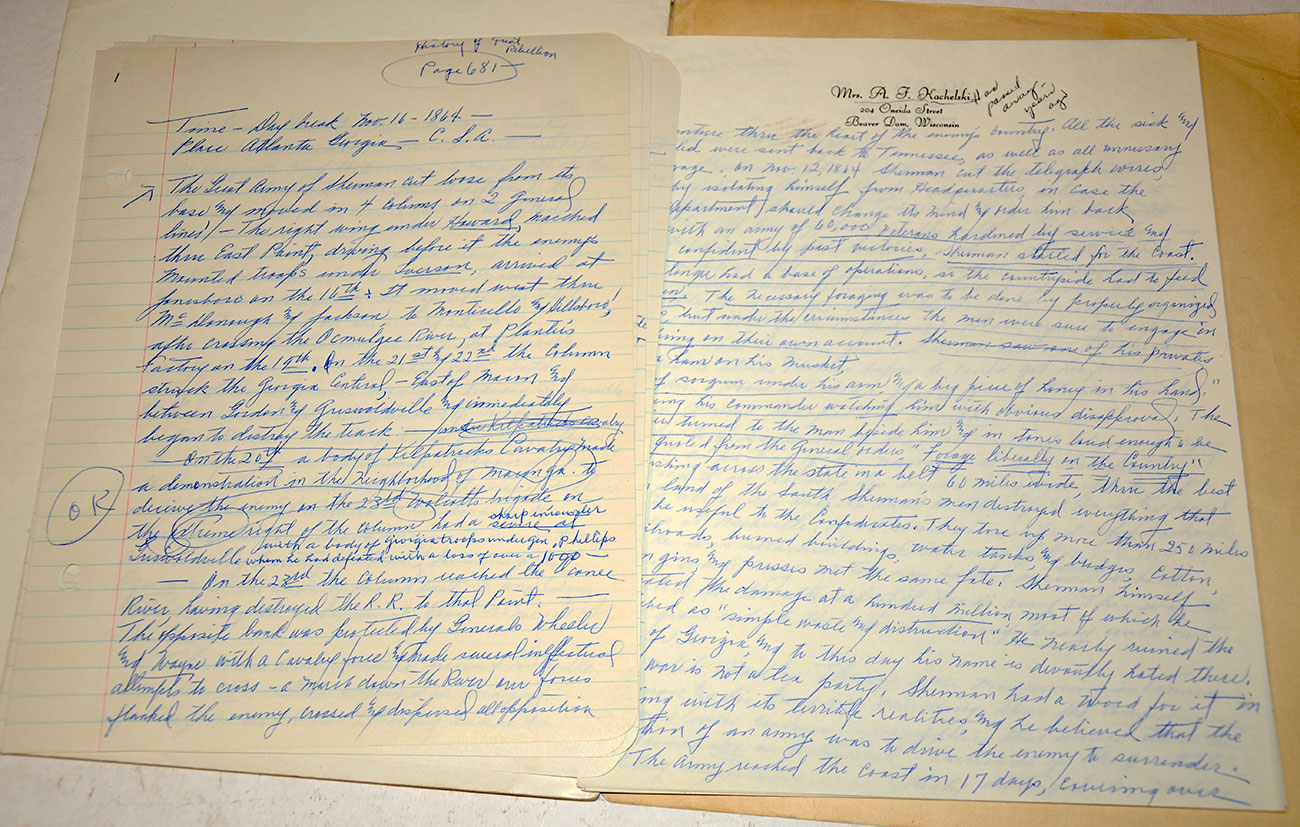 History of Great
Rebellion
Page 681
1
Time - Day break Nov. 16 - 1864 -
Place Atlanta Georgia - C. S. A. -
The Great Army of Sherman cut loose from its
base & moved in 4 Colums on 2 General
lines / - The right wing under Howard, marched
thru East Point, driving before it the enemys
Mounted troops under Iverson, arrived at
Jonesboro on the 16th : It moved west thru
McDonough & Jackson to Monticello & Hillsboro,
after crossing the Ocmulgee River, at Planters
Factory on the 19th. On the 21st & 22nd the Column
struck the Georgia Central, - East of Macon &
between Gordon & Griswoldville & immediately
began to destroy the track - Kilpatricks Cavalry
- On the 20th a body of Kilpatricks Cavalry made
a demonstration in the Neighborhood of Macon Ga. to
deceive the enemy on the 23rd Walcutt brigade on
OR
the extreme right of the column had a severe at
sharp encounter
Griswoldville with a body of Georgia troops under gen. Phillips
whom he had defeated with a loss of over a 1000 -
- On the 23rd the Column reached the Oconee
River, having destroyed the R. R. to that Point. -
The opposite bank was protected by Generals Wheeler
& Wayne with a Cavalry force & made several ineffectual
attempts to cross - a march down the River our forces
flanked the enemy, crossed & dispersed all opposition
Mrs. A. F. Kachelski
204 Oneida Street
Beaver Dam, Wisconsin
Has
passed
away
years
ago
thru the heart of the enemy's Country. All the sick &
were sent back to Tennessee, as well as all unnessary
. On Nov. 12, 1864 Sherman cut the telegraph wires
by isolating himself from Headquarters, in case the
should change its mind & order him back
with an army of 60,000 veterans hardened by service &
confident by past victories, Sherman started for the Coast.
longer had a base of operations, so the countryside had to feed
The necessary foraging was to be done by properly organized
but under the circumstances the men were sure to engage in
on their own account. Sherman saw one of his privates
a ham on his musket,
of sorgum under his arm & a big piece of honey in his hand."
his commander watching him with obvious disapproval, The
turned to the man beside him & in tones loud enough to be
quoted from the General orders, "Forage liberally on the Country"
across the state in a belt 60 miles wide, thru the best
land of the South Shermans men destroyed everything that
be useful to the Confederates. They tore up more than 250 miles
burned buildings, water tanks & bridges, Cotton,
gins & presses met the same fate. Sherman himself
the damage at a hundred million most of which he
as "simple waste & distruction" He nearly ruined the
of Georgia, & to this day his name is devoutly hated there.
war is not a tea party. Sherman had a word for it in
with its terrible realities, & he believed that the
of an army was to drive the enemy to surrender.
The Army reached the coast in 17 days, covering over